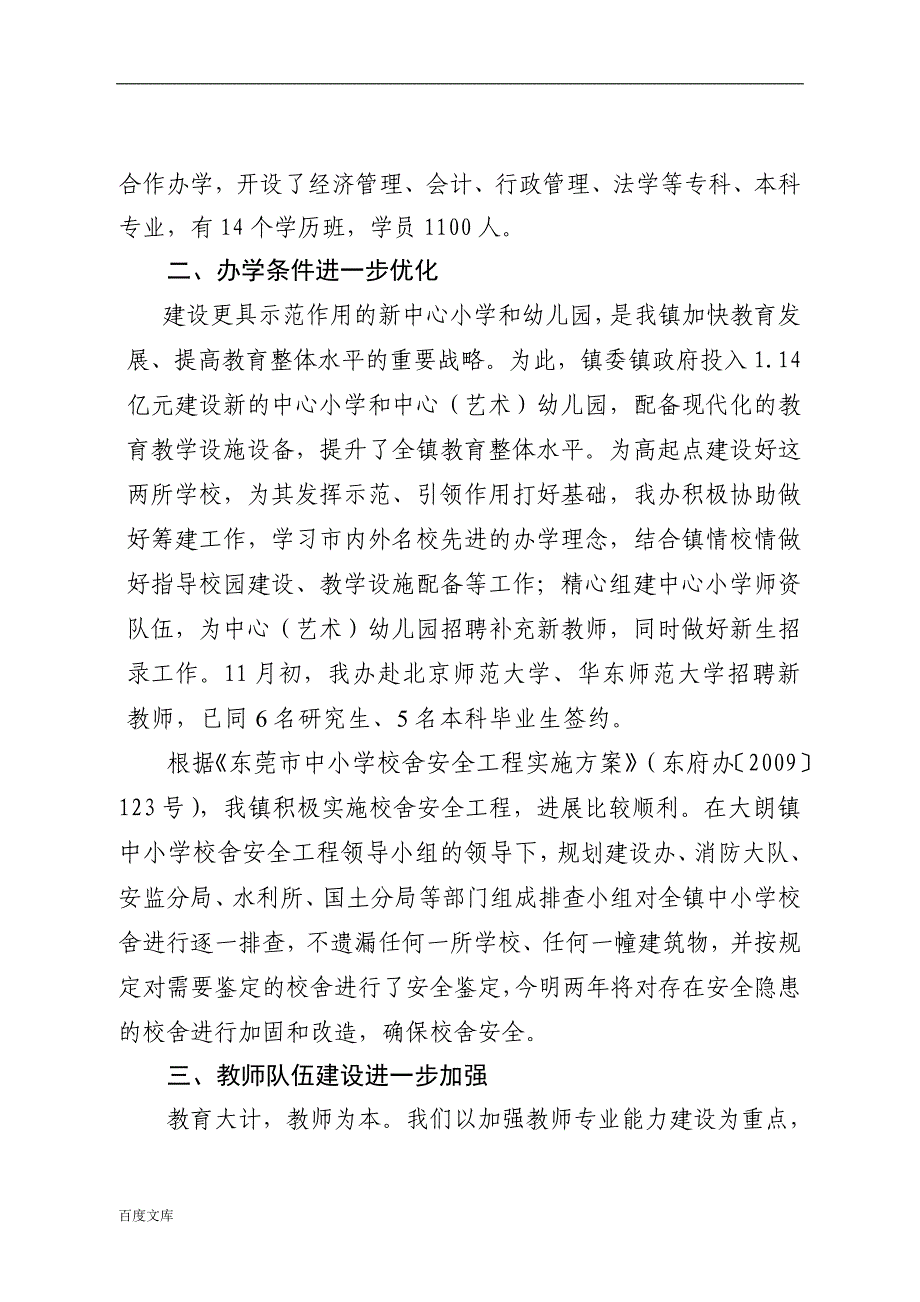 合作办学，开设了经济管理、会计、行政管理、法学等专科、本科
专业，有14个学历班，学员1100人。
二、办学条件进一步优化
建设更具示范作用的新中心小学和幼儿园，是我镇加快教育发
展、提高教育整体水平的重要战略。为此，镇委镇政府投入1.14
亿元建设新的中心小学和中心（艺术）幼儿园，配备现代化的教
育教学设施设备，提升了全镇教育整体水平。为高起点建设好这
两所学校，为其发挥示范、引领作用打好基础，我办积极协助做
好筹建工作，学习市内外名校先进的办学理念，结合镇情校情做
好指导校园建设、教学设施配备等工作；精心组建中心小学师资
队伍，为中心（艺术）幼儿园招聘补充新教师，同时做好新生招
录工作。11月初，我办赴北京师范大学、华东师范大学招聘新
教师，已同6名研究生、5名本科毕业生签约。
根据《东莞市中小学校舍安全工程实施方案》（东府办〔2009〕
123号），我镇积极实施校舍安全工程，进展比较顺利。在大朗镇
中小学校舍安全工程领导小组的领导下，规划建设办、消防大队、
安监分局、水利所、国土分局等部门组成排查小组对全镇中小学校
舍进行逐一排查，不遗漏任何一所学校、任何一幢建筑物，并按规
定对需要鉴定的校舍进行了安全鉴定，今明两年将对存在安全隐患
的校舍进行加固和改造，确保校舍安全。
三、教师队伍建设进一步加强
教育大计，教师为本。我们以加强教师专业能力建设为重点，
百度文库